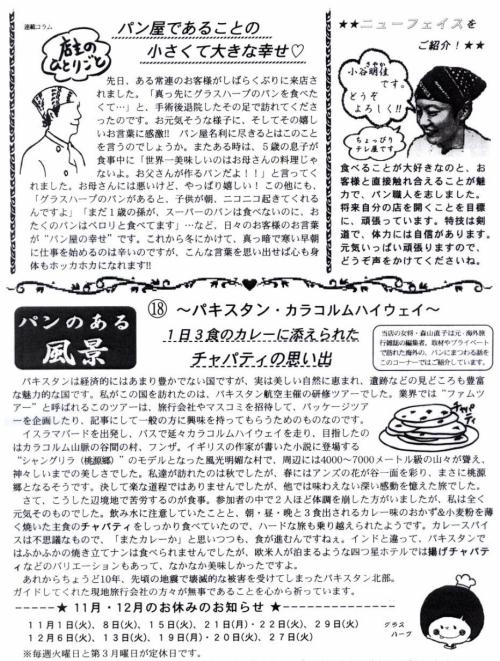 連載コラム
店主の
ひとりごと
パン屋であることの
小さくて大きな幸せ♡
先日、ある常連のお客様がしばらくぶりに来店さ
れました。「真っ先にグラスハープのパンを食べた
くて…」と、手術後退院したその足で訪れてくださ
ったのです。お元気そうな様子に、そしてその嬉し
いお言葉に感激!! パン屋名利に尽きるとはこのこと
を言うのでしょうか。またある時は、5歳の息子が
食事中に「世界一美味しいのはお母さんの料理じゃ
ないよ。お父さんが作るパンだよ!!」と言ってく
れました。お母さんには悪いけど、やっぱり嬉しい!この他にも、
「グラスハープのパンがあると、子供が朝、ニコニコ起きてくれる
んですよ」「まだ1歳の孫が、スーパーのパンは食べないのに、お
たくのパンはペロリと食べてます」…など、日々のお客様のお言葉
が“パン屋の幸せ”です。これから冬にかけて、真っ暗で寒い早朝
に仕事を始めるのは辛いのですが、こんな言葉を思い出せば心も身
体もホッカホカになれます!!
★★ニューフェイスを
ご紹介!★★
さやか
小谷明佳
です。
どうぞ
よろしく!!
ちょっぴり
テレ屋です
食べることが大好きなのと、お
客様と直接触れ合えることが魅
力で、パン職人を志しました。
将来自分の店を開くことを目標
に、頑張っています。特技は剣
道で、体力には自信があります。
元気いっぱい頑張りますので、
どうぞ声をかけてくださいね。
パンのある
風景
⑱ ～パキスタン・カラコルムハイウェイ～
1日3食のカレーに添えられた
チャパティの思い出
当店の女将・森山直子は元・海外旅
行雑誌の編集者。取材やプライベート
で訪れた海外の、パンにまつわる話を
このコーナーではご紹介しています。
パキスタンは経済的にはあまり豊かでない国ですが、実は美しい自然に恵まれ、遺跡などの見どころも豊富
な魅力的な国です。私がこの国を訪れたのは、パキスタン航空主催の研修ツアーでした。業界では“ファムツ
アー”と呼ばれるこのツアーは、旅行会社やマスコミを招待して、パッケージツア
ーを企画したり、記事にして一般の方に興味を持ってもらうためのものなのです。
イスラマバードを出発し、バスで延々カラコルムハイウェイを走り、目指したの
はカラコルム山脈の谷間の村、フンザ。イギリスの作家が書いた小説に登場する
“シャングリラ（桃源郷）”のモデルとなった風光明媚な村で、周辺には4000～7000メートル級の山々が聳え、
神々しいまでの美しさでした。私達が訪れたのは秋でしたが、春にはアンズの花が谷一面を彩り、まさに桃源
郷となるそうです。決して楽な道程ではありませんでしたが、他では味わえない深い感動を憶えた旅でした。
さて、こうした辺境地で苦労するのが食事。参加者の中で2人ほど体調を崩した方がいましたが、私は全く
元気そのものでした。飲み水に注意していたことと、朝・昼・晩と3食出されるカレー味のおかず&小麦粉を薄
く焼いた主食のチャパティをしっかり食べていたので、ハードな旅も乗り越えられたようです。カレースパイ
スは不思議なもので、「またカレーか」と思いつつも、食が進むんですねぇ。インドと違って、パキスタンで
はふかふかの焼き立てナンは食べられませんでしたが、欧米人が泊まるような四つ星ホテルでは揚げチャパテ
ィなどのバリエーションもあって、なかなか美味しかったですよ。
あれからちょうど10年、先頃の地震で壊滅的な被害を受けてしまったパキスタン北部。
ガイドしてくれた現地旅行会社の方々が無事であることを心から祈っています。
チャパティ
★ 11月・12月のお休みのお知らせ ★
11月1日(火)、8日(火)、15日(火)、21日(月)・22日(火)、29日(火)
12月6日(火)、13日(火)、19日(月)・20日(火)、27日(火)
※毎週火曜日と第3月曜日が定休日です。
グラス
ハープ